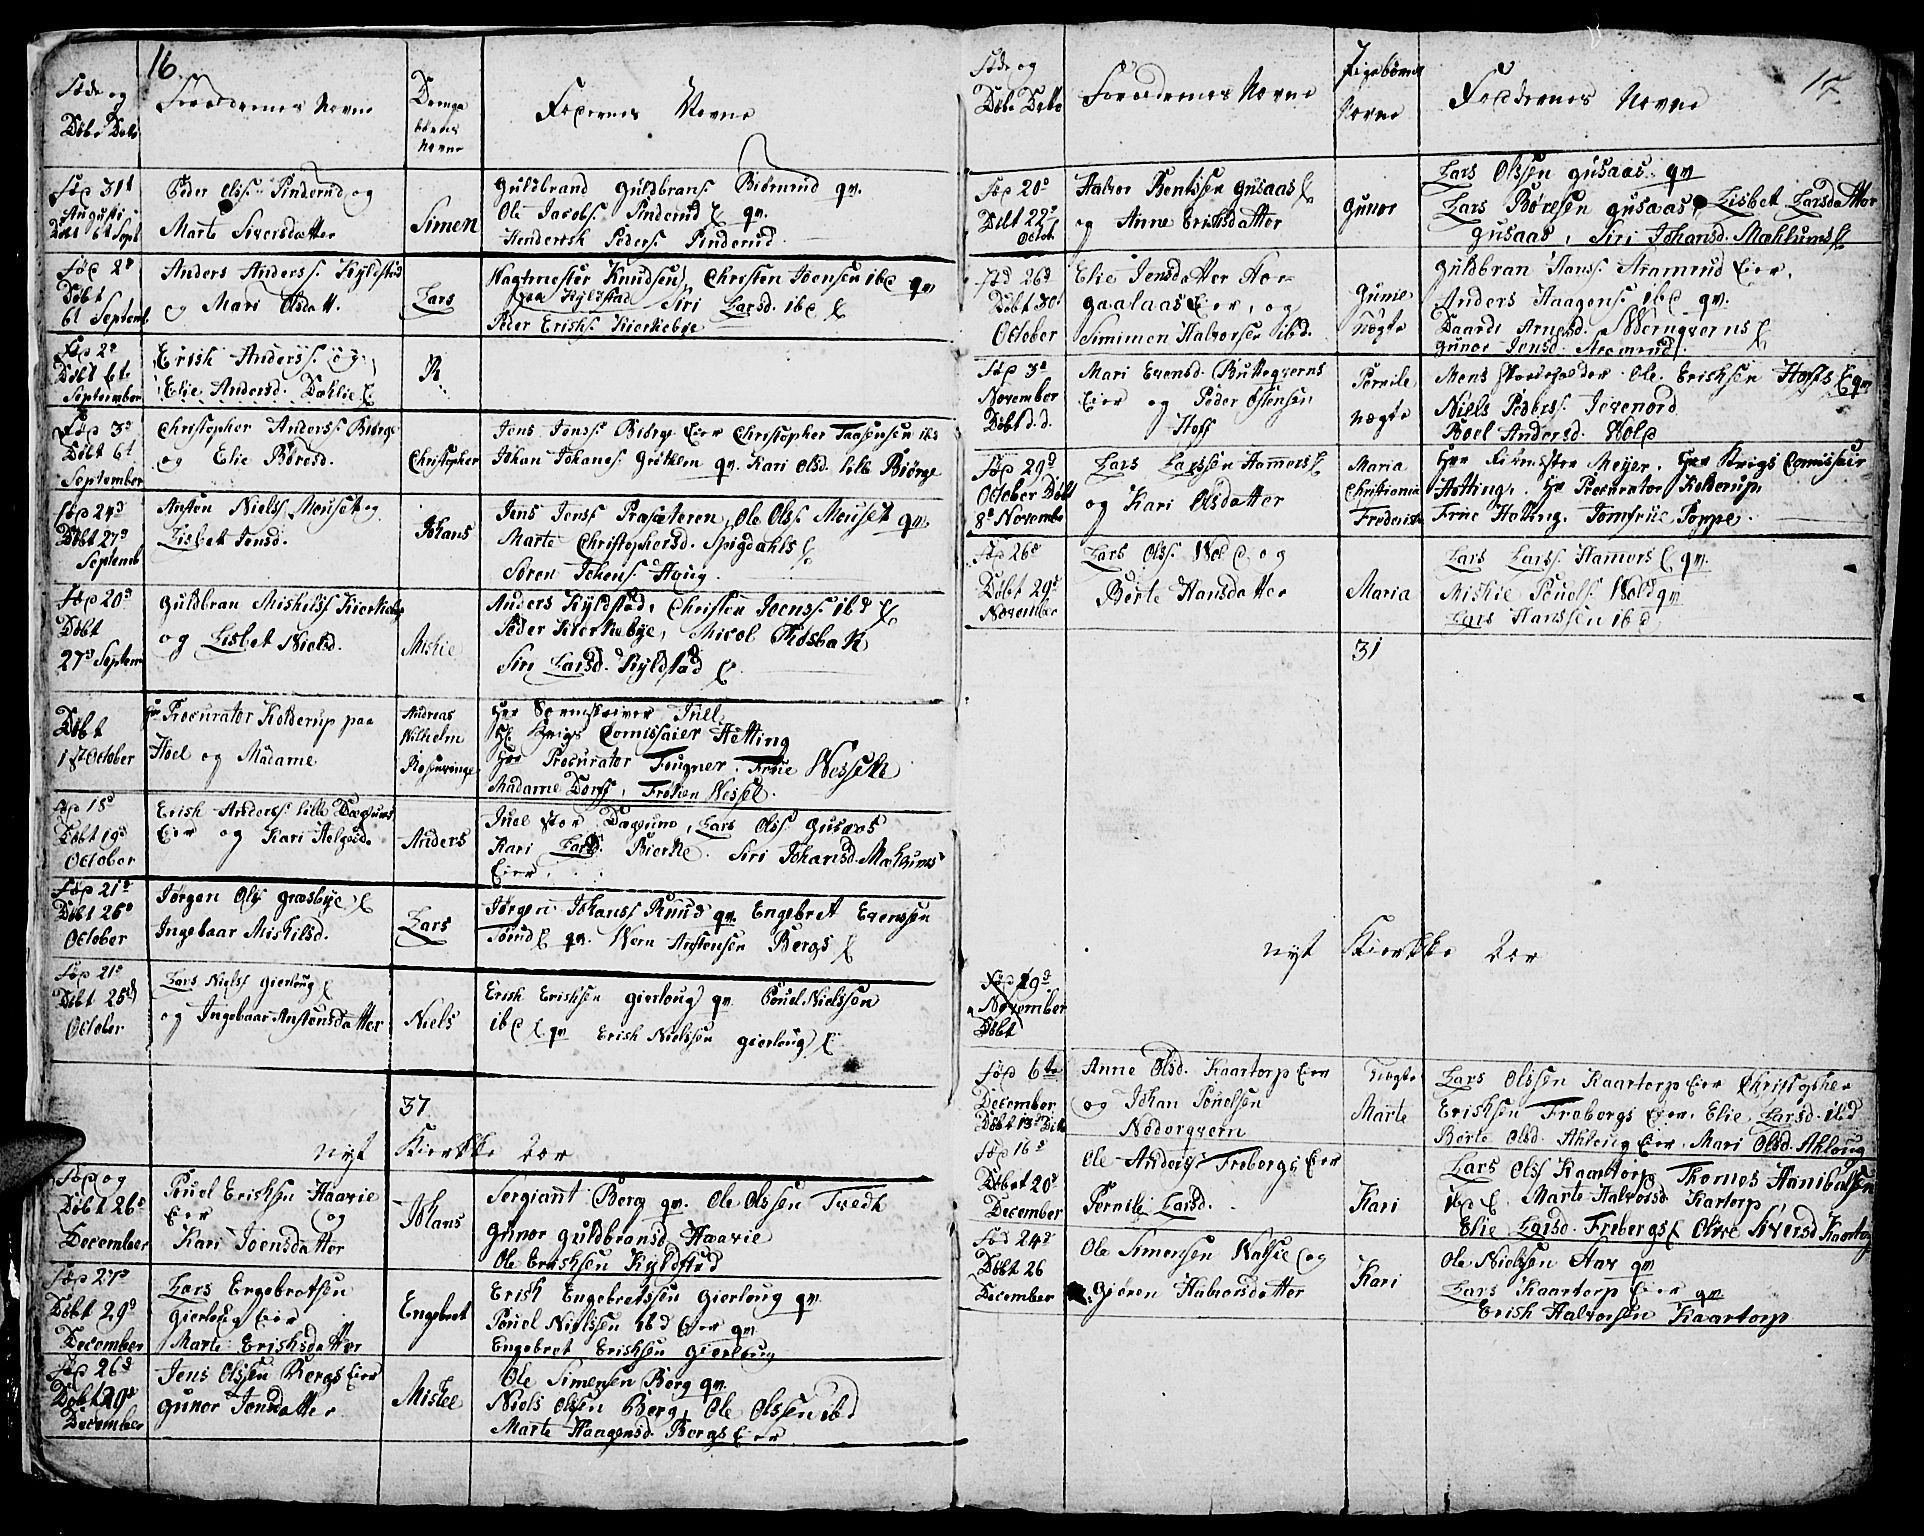 16
Føde og
Døbe Dato
Foreldrenes Navne
Drenge
børns
Navne
Faddernes Navne
Fød 31t
Augusti
Døbt 6t Sept
Peder Olss. Pinderud og
Marte Siversdatter
Simen
Guldbrand Guldbrans. Biørnerud qv.
Ole Jacobs. Pinderud E qv.
Henderich Peders. Pinderud
Fød 2d
Døbt
6t Septemb
Anders Anderss. Kyldstad
og Mari Olsdatt.
Lars
Vagtmester Knudsen, Christen Joensen ibd qv
paa Kyldstad Siri Larsd. ibd E
Peder Erichs. Kierkebye
Fød 2d
Døbt 6te
September
Erich Anderss. og
Elie Andersd. Dahlie E
Fød 3d
Døbt 6t
September
Christopher Anderss Biørge
og Elie Børesd.
Christopher
Jens Jenss. Biørge Eier Christopher Taasensen ibd
Johan Johanes. Grøtlien qv. Kari Olsd. lille Biørge
Fød 24d
Døbt 27d
Septemb
Ansten Nielss Mouset og
Lisbet Jensd.
Johans
Jens Jenss Præsteteren, Ole Olss. Mouset qv.
Marte Christophersd. Spigdahls E
Søren Johans. Haug.
Fød 20d
Døbt
27d Septem
Guldbran Mickilss Kierkebye
og Lisbet Nielsd.
Mickie
Anders Kyldstad, Christen Joenss. ibd E
Peder Kierkebye, Nicol Fosbak
Siri Larsd. Kyldstad E
Døbt
1st October
Hr Procurator Kolderup paa
Hoel og Madame
Andreas
Wilhelm
Rosenvinge
Herr Sorenskriver Juell
Hr. Krigs Comissaier Hetting
Her Procurator Fougner. Frue Wessell
Madame Dorff, Frøken Wessel.
Fød 15d
Døbt 19d
October
Erich Anderss. lille Dæhlums
Eier og Kari Helgesd.
Anders
Juel stor Dæhlum, Lars Olss. Gusaas
Kari Larsd. Bierke. Siri Johansd. Mæhlums
Eier.
Fød 21d
Døbt 25d
October
Jørgen Olss Græsbye E
Ingebaar Mickilsd.
Lars
Jørgen Johanss Ruud qv. Engebret Evensen
Toerud E qv. Wern Anstensen Bergs E
Fød 21d
Døbt 25d
October
Lars Nielss Gierloug E
og Ingebaar Anstensdatter
Niels
Erich Erichsen Gierloug qv. Pouel Nielssen
ibd E qv Erich Nielssen Gierloug E
37
nyt Kierkke Aar
Fød og
Døbt 26d
December
Pouel Erichsen Haavie
Eier og
Kari Joensdatter
Johans
Sergiant Berg qv. Ole Olssen Tredt
Gunor Guldbransd. Haavie
Ole Erichsen Kyldstad
Fød 27d
Døbt 29d
December
Lars Engebretsen
Gierloug Eier
Marte Erichsdatter
Engebret
Erich Engebretsen Gierloug qv.
Pouel Nielssen ibd Eier qv
Engebret Erichsen Gierloug
Fød 26d
Døbt 29d
December
Jens Olssen Bergs Eier
Gunor Jensdatter
Mickel
Ole Simensen Berg qv.
Niels Olssen Berg, Ole Olssen ibd
Marte Haagensd. Bergs Eier
17
Føde og
Døbe Dato
Foreldrenes Navne
Pigebørnes
Navne
Faddernes Navne
Fød 20d
Døbt 22d
Octob.
Halvor Bentssen Gusaas E
og Anne Erichsdatter
Gunor
Lars Olssen Gusaas. qv
Lars Børesen Gusaas, Lisbet Larsdatter
Gusaas, Siri Johansd. Mæhlums E
Fød 26d
Døbt 30t
October
Elie Jensdatter Hor
gaalaas Eier, og
Simimen Halvorsen ibd.
Gunie
uægte
Guldbran Hans. Aramrud Eier,
Anders Haagens. ibd qv.
Baardt Arnesd. Nørnqverns E
Gunor Jensd. Aramrud
Fød 3d
November
Døbt d. d.
Mari Evensd. Butteqverns
Eier og Peder Østensen
Hoff
Pernile
uægte
Mons Skredefalder Ole Erichsen Hoffs E qv
Niels Peders. Jevenord
Boel Andersd. Hold
Fød 29d
October Døbt
8d Novembr
Lars Larssen Hammers E
og Kari Olsdatter
Maria
Christiania
Frederich
Her Ritmester Meyer. Her Krigs Comissair
Hetting, Hr Procurator Kolderup
Frue Hetting, Jomfrue Poppe.
Fød 26d
Døbt 29d
November
Lars Olss. Wold og
Børte Hansdatter
Maria
Lars Larss. Hamers E qv.
Mickie Pouels. Wold qv
Lars Hanssen ibd
31
nyt Kierkke Aar
Fød 19d
November
Døbt
Fød 6te
December
Døbt 13d Dito
Anne Olsd. Kaartorp Eier
og Johan Pouelsen
Nøderqvern
uægte
Marte
Lars Olssen Kaartorp Eier Christopher
Erichsen Frebergs Eier. Elie Larsd. ibd
Børte Olsd. Ahloug Eier, Mari Olsd. Ahloug
Fød 16d
Døbet 20d
December
Ole Anderss Frebergs Eier
Pernile Larsd.
Kari
Lars Olss Kaartorp Thomes Hanibalsen
ibd E. Marte Halvorsd Kartorp
Elie Larsd. Frebergs E Olive Siversd Kaartorp
Fød 24d
Døbt 26
December
Ole Simensen Nalsie og
Gjøren Halvorsdatter
Kari
Ole Nielssen Aar qv
Lars Kaartorp Eier qv
Erich Halvorsen Kaartorp